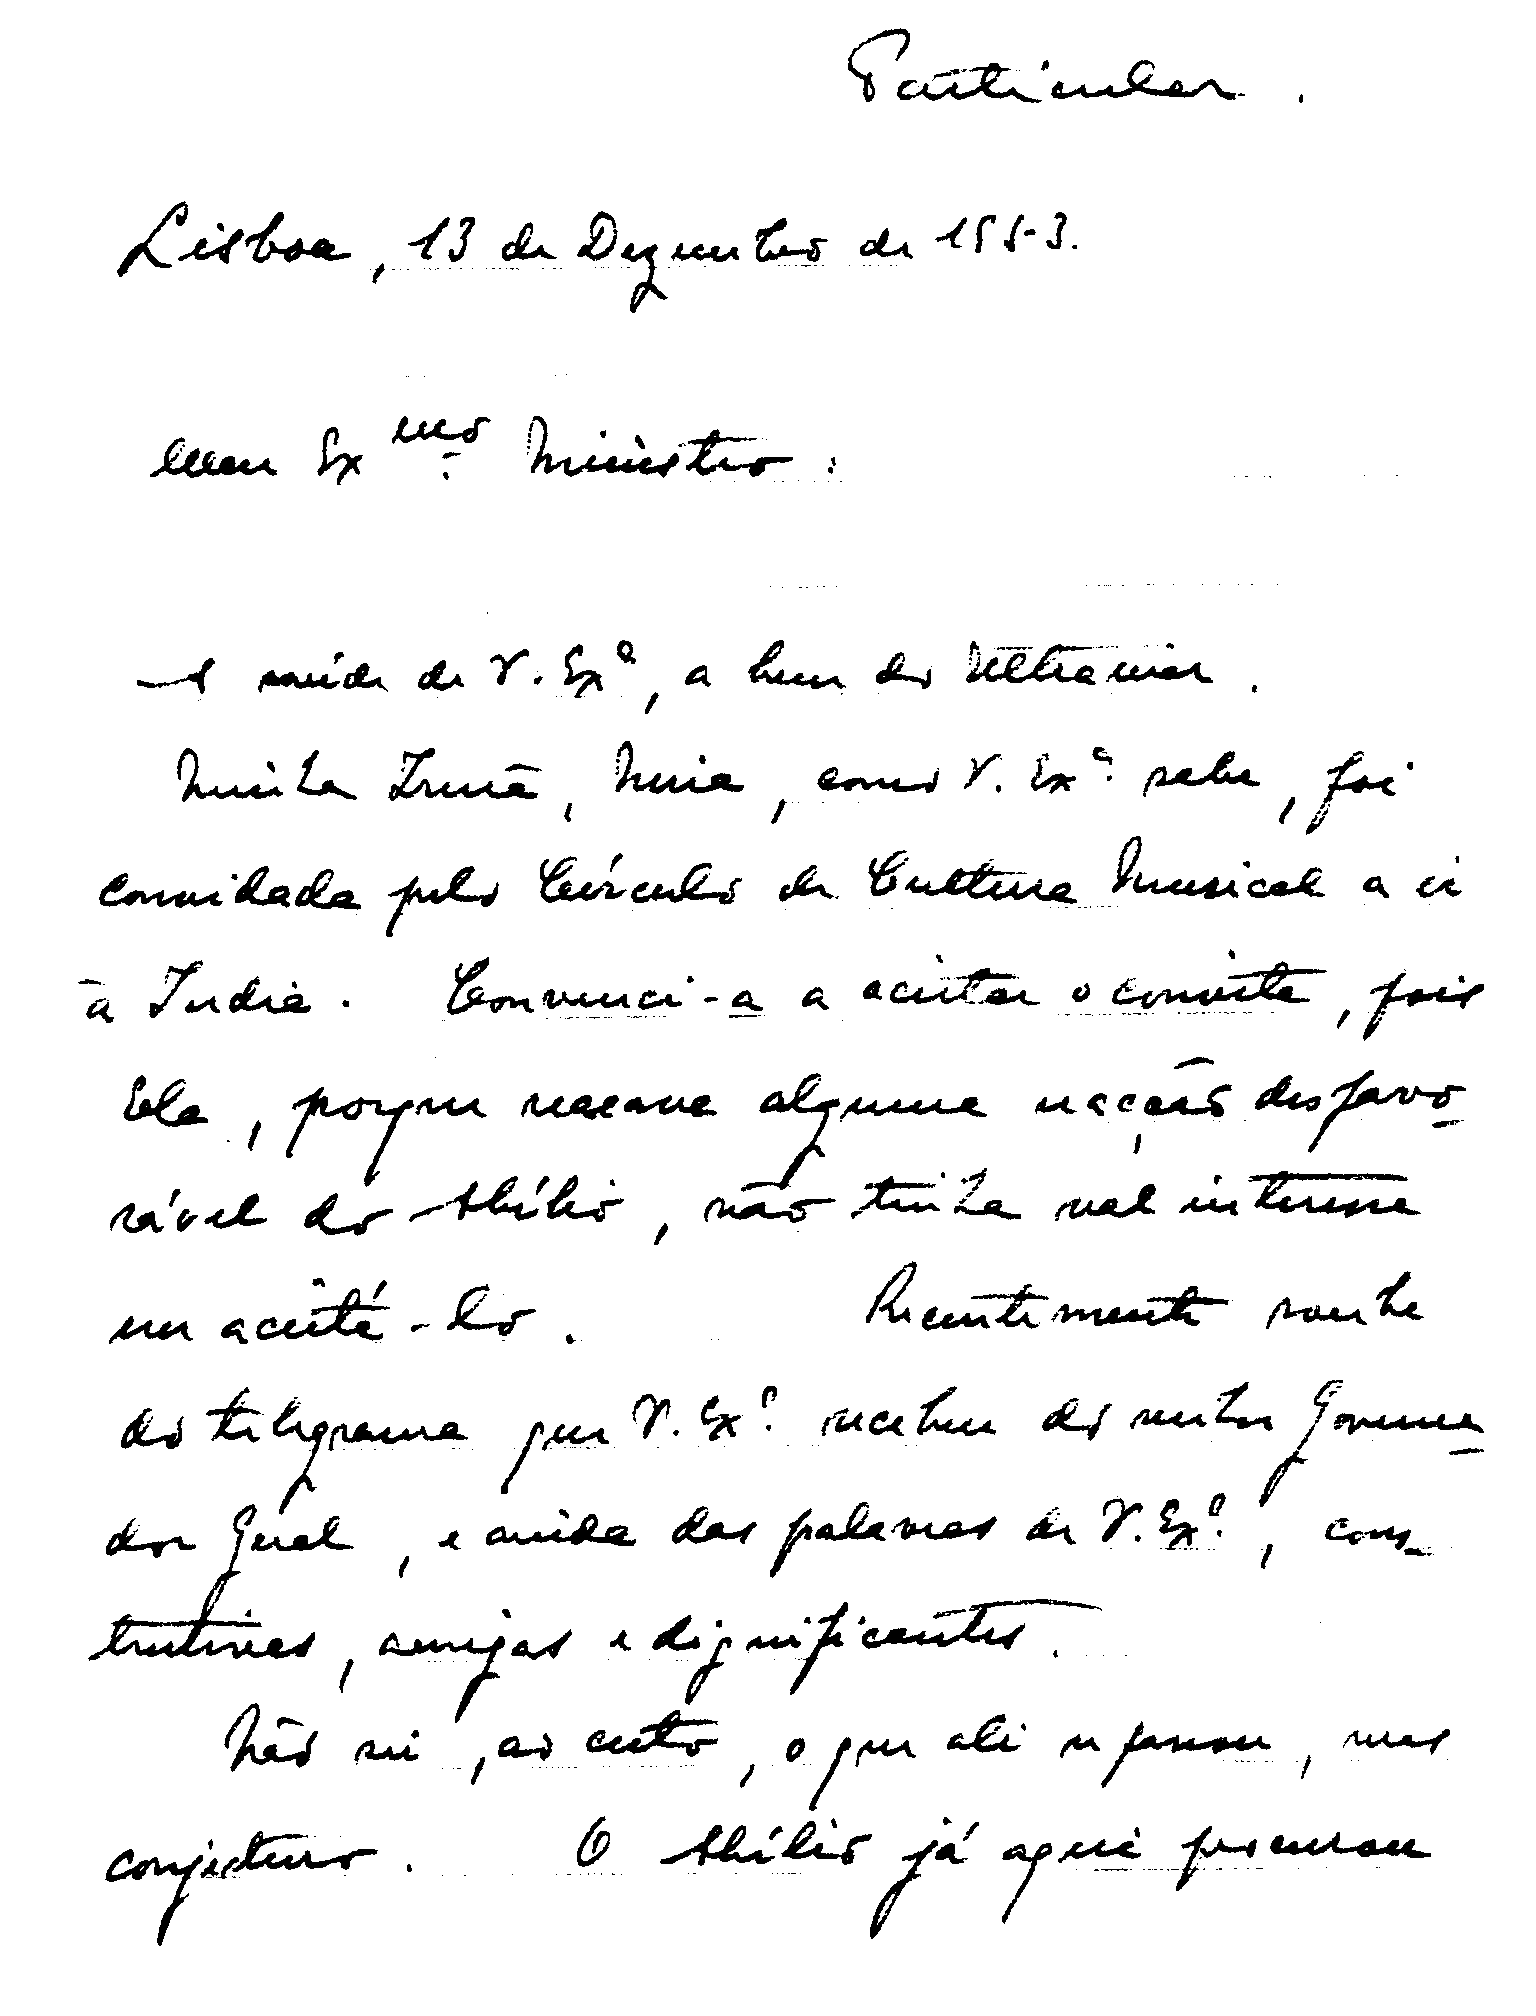 Particular.
Lisboa, 13 de Dezembro de 1953.
Meu Exmo. Ministro:
A saúde de V. Exª, a bem do Ultramar.
Minha Irmã, Nina, como V. Exª. sabe, foi
convidada pelo Círculo de Cultura Musical a ir
à India. Convenci-a a aceitar o convite, pois
Ela, porque receava alguma reacção desfavo-
rável do Abílio, não tinha real interesse
em aceitá-lo. Recentemente soube
do telegrama que V. Exª. recebeu do senhor Governa-
dor Geral, e ainda das palavras de V. Exª., cons-
trutivas, amigas e dignificantes.
Não sei, ao certo, o que ali se passou, mas
conjecturo. O Abílio já aqui procurou